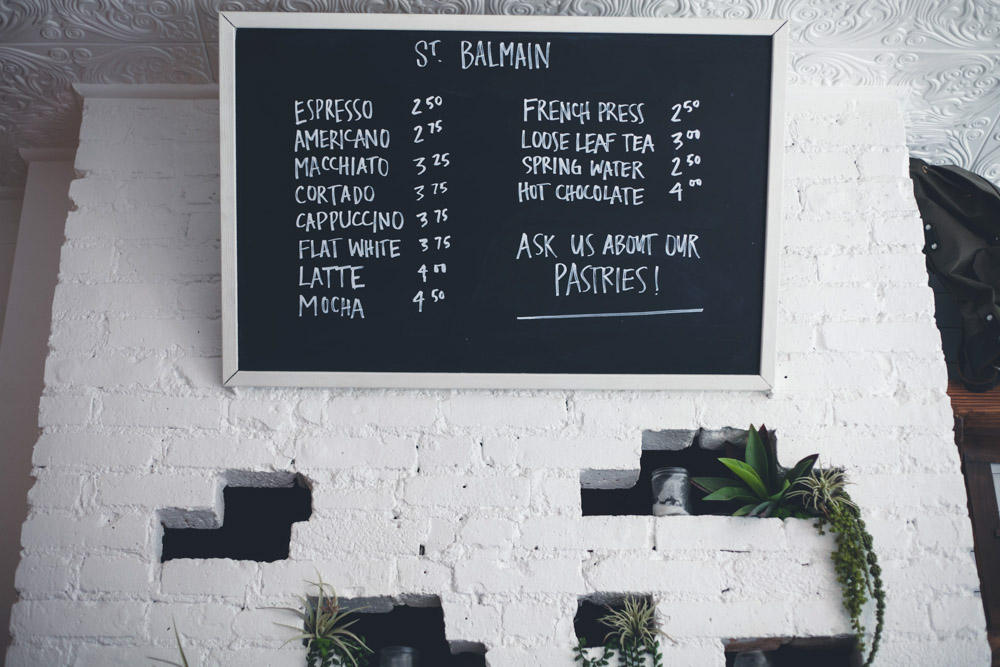 ST. BALMAIN
ESPRESSO 2 50
AMERICANO 2 75
MACCHIATO 3 25
CORTADO 3 75
CAPPUCCINO 3 75
FLAT WHITE 3 75
LATTE 4 00
MOCHA 4 50
FRENCH PRESS 2 50
LOOSE LEAF TEA 3 00
SPRING WATER 2 50
HOT CHOCOLATE 4 00
ASK US ABOUT OUR
PASTRIES!